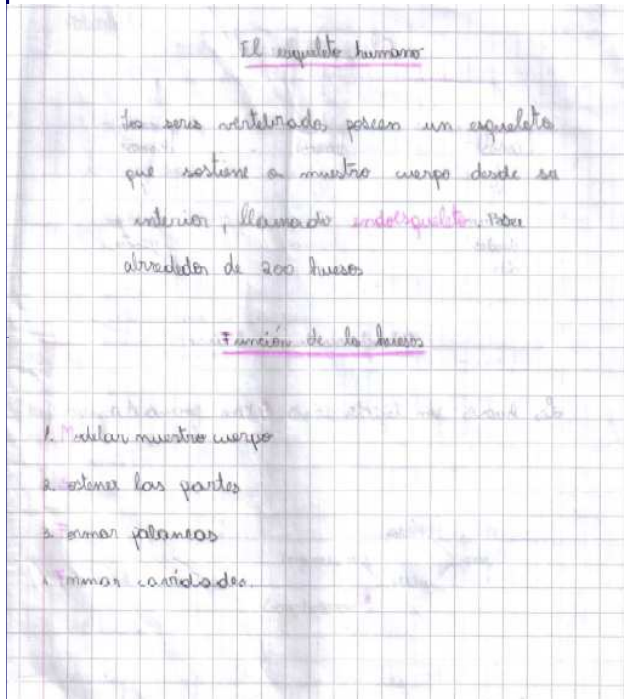 El esqueleto humano
los seres vertebrados poseen un esqueleto
que sostiene a nuestro cuerpo desde su
interior, llamado endoesqueleto. Posee
alrededor de 200 huesos
Función de lo huesos
1. Modelar nuestro cuerpo
2. Sostener las partes
3. Formar palancas
4. Formar cavidades.